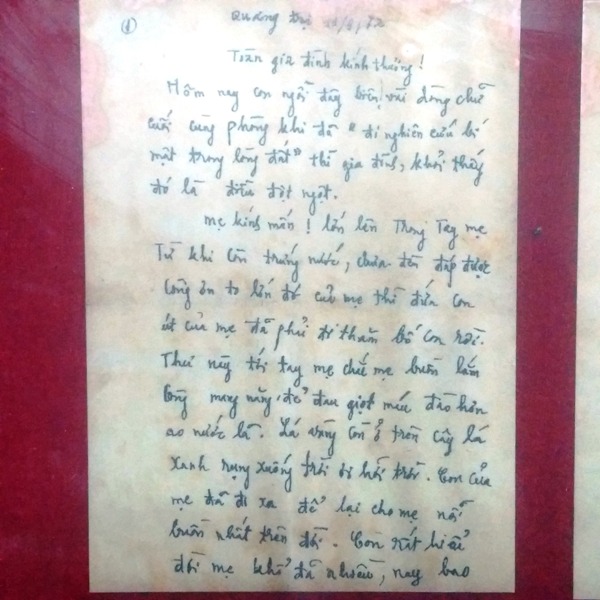 (1)
Quảng trị 11/9/72
Toàn gia đình kính thương!
Hôm nay con ngồi đây biên vài dòng chữ
cuối cùng phòng khi đã "đi nghiên cứu bí
mật trong lòng đất" thì gia đình, khỏi thấy
đó là điều đột ngột.
mẹ kính mến! lớn lên Trong Tay mẹ
Từ khi còn trứng nước, chưa đền đáp được
công ơn to lớn đó của mẹ thì đứa con
út của mẹ đã phải đi thăm bố con rồi.
Thư này tới tay mẹ chắc mẹ buồn lắm
lòng mang nặng, đẻ đau giọt máu đào hơn
ao nước lã. Lá vàng còn ở trên cây lá
xanh rụng xuống trời ơi hỡi trời. Con của
mẹ đã đi xa để lại cho mẹ nỗi
buồn nhất trên đời. Con rất hiểu
đời mẹ khổ đã nhiều, nay bao